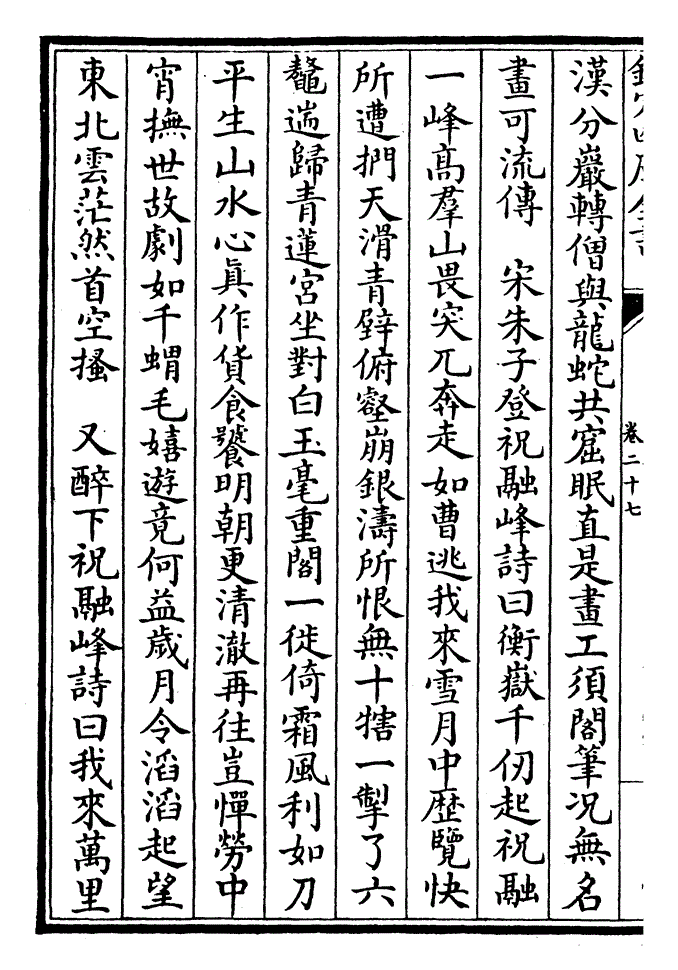 卷二十七
漢分巖轉僧與龍蛇共窟眠直是畫工須閣筆况無名
畫可流傳　宋朱子登祝融峰詩曰衡嶽千仞起祝融
一峰髙羣山畏突兀奔走如曹逃我來雪月中歴覽快
所遭捫天滑青壁俯壑崩銀濤所恨無十犗一掣了六
鼇遄歸青蓮宮坐對白玉毫重閣一徙倚霜風利如刀
平生山水心眞作貨食饕明朝更清澈再往豈憚勞中
宵撫世故劇如千蝟毛嬉遊竟何益歲月令滔滔起望
東北雲茫然首空搔　又醉下祝融峰詩曰我來萬里